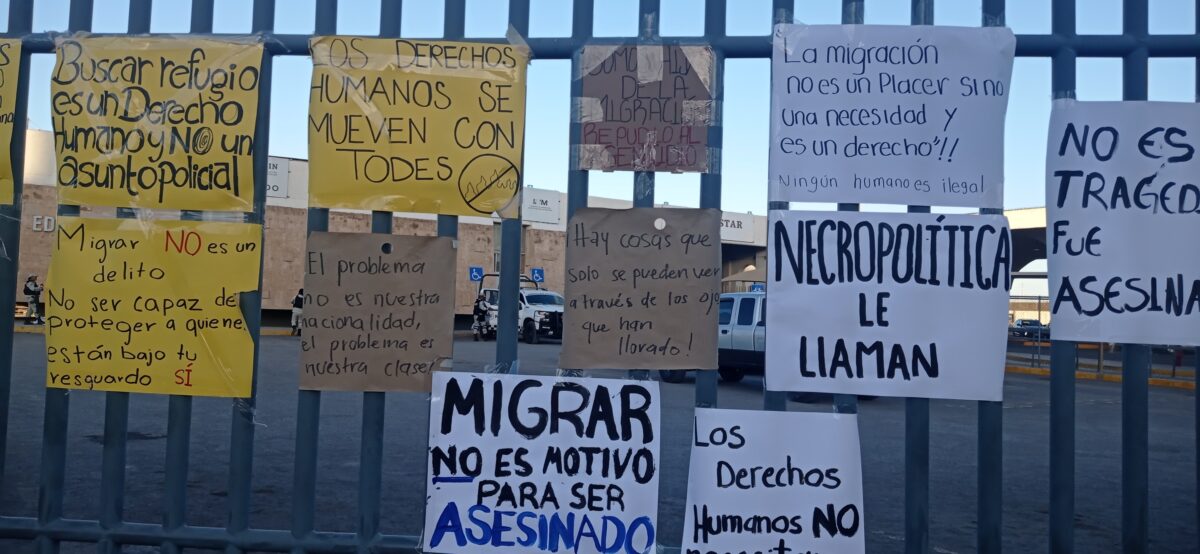 Buscar refugio
es un Derecho
Humano y NO un
asunto policial
LOS DERECHOS
HUMANOS SE
MUEVEN CON
TODES
DE LA
REPUDIO AL
"La migración
no es un Placer SINO
una necesidad y
es un derecho"!!
Ningún humano es ilegal
NO ES
TRAGED
FUE
ASESINA
Migrar NO es un
delito
No ser capaz de
proteger a quiene
están bajo tu
resguardo SÍ
El problema
no es nuestra
nacionalidad,
el problema es
nuestra clase!
Hay cosas que
solo se pueden ver
a través de los ojo
que han
llorado!
NECROPOLÍTICA
LE
LLAMAN
MIGRAR
NO ES MOTIVO
PARA SER
ASESINADO
Los
Derechos
Humanos NO